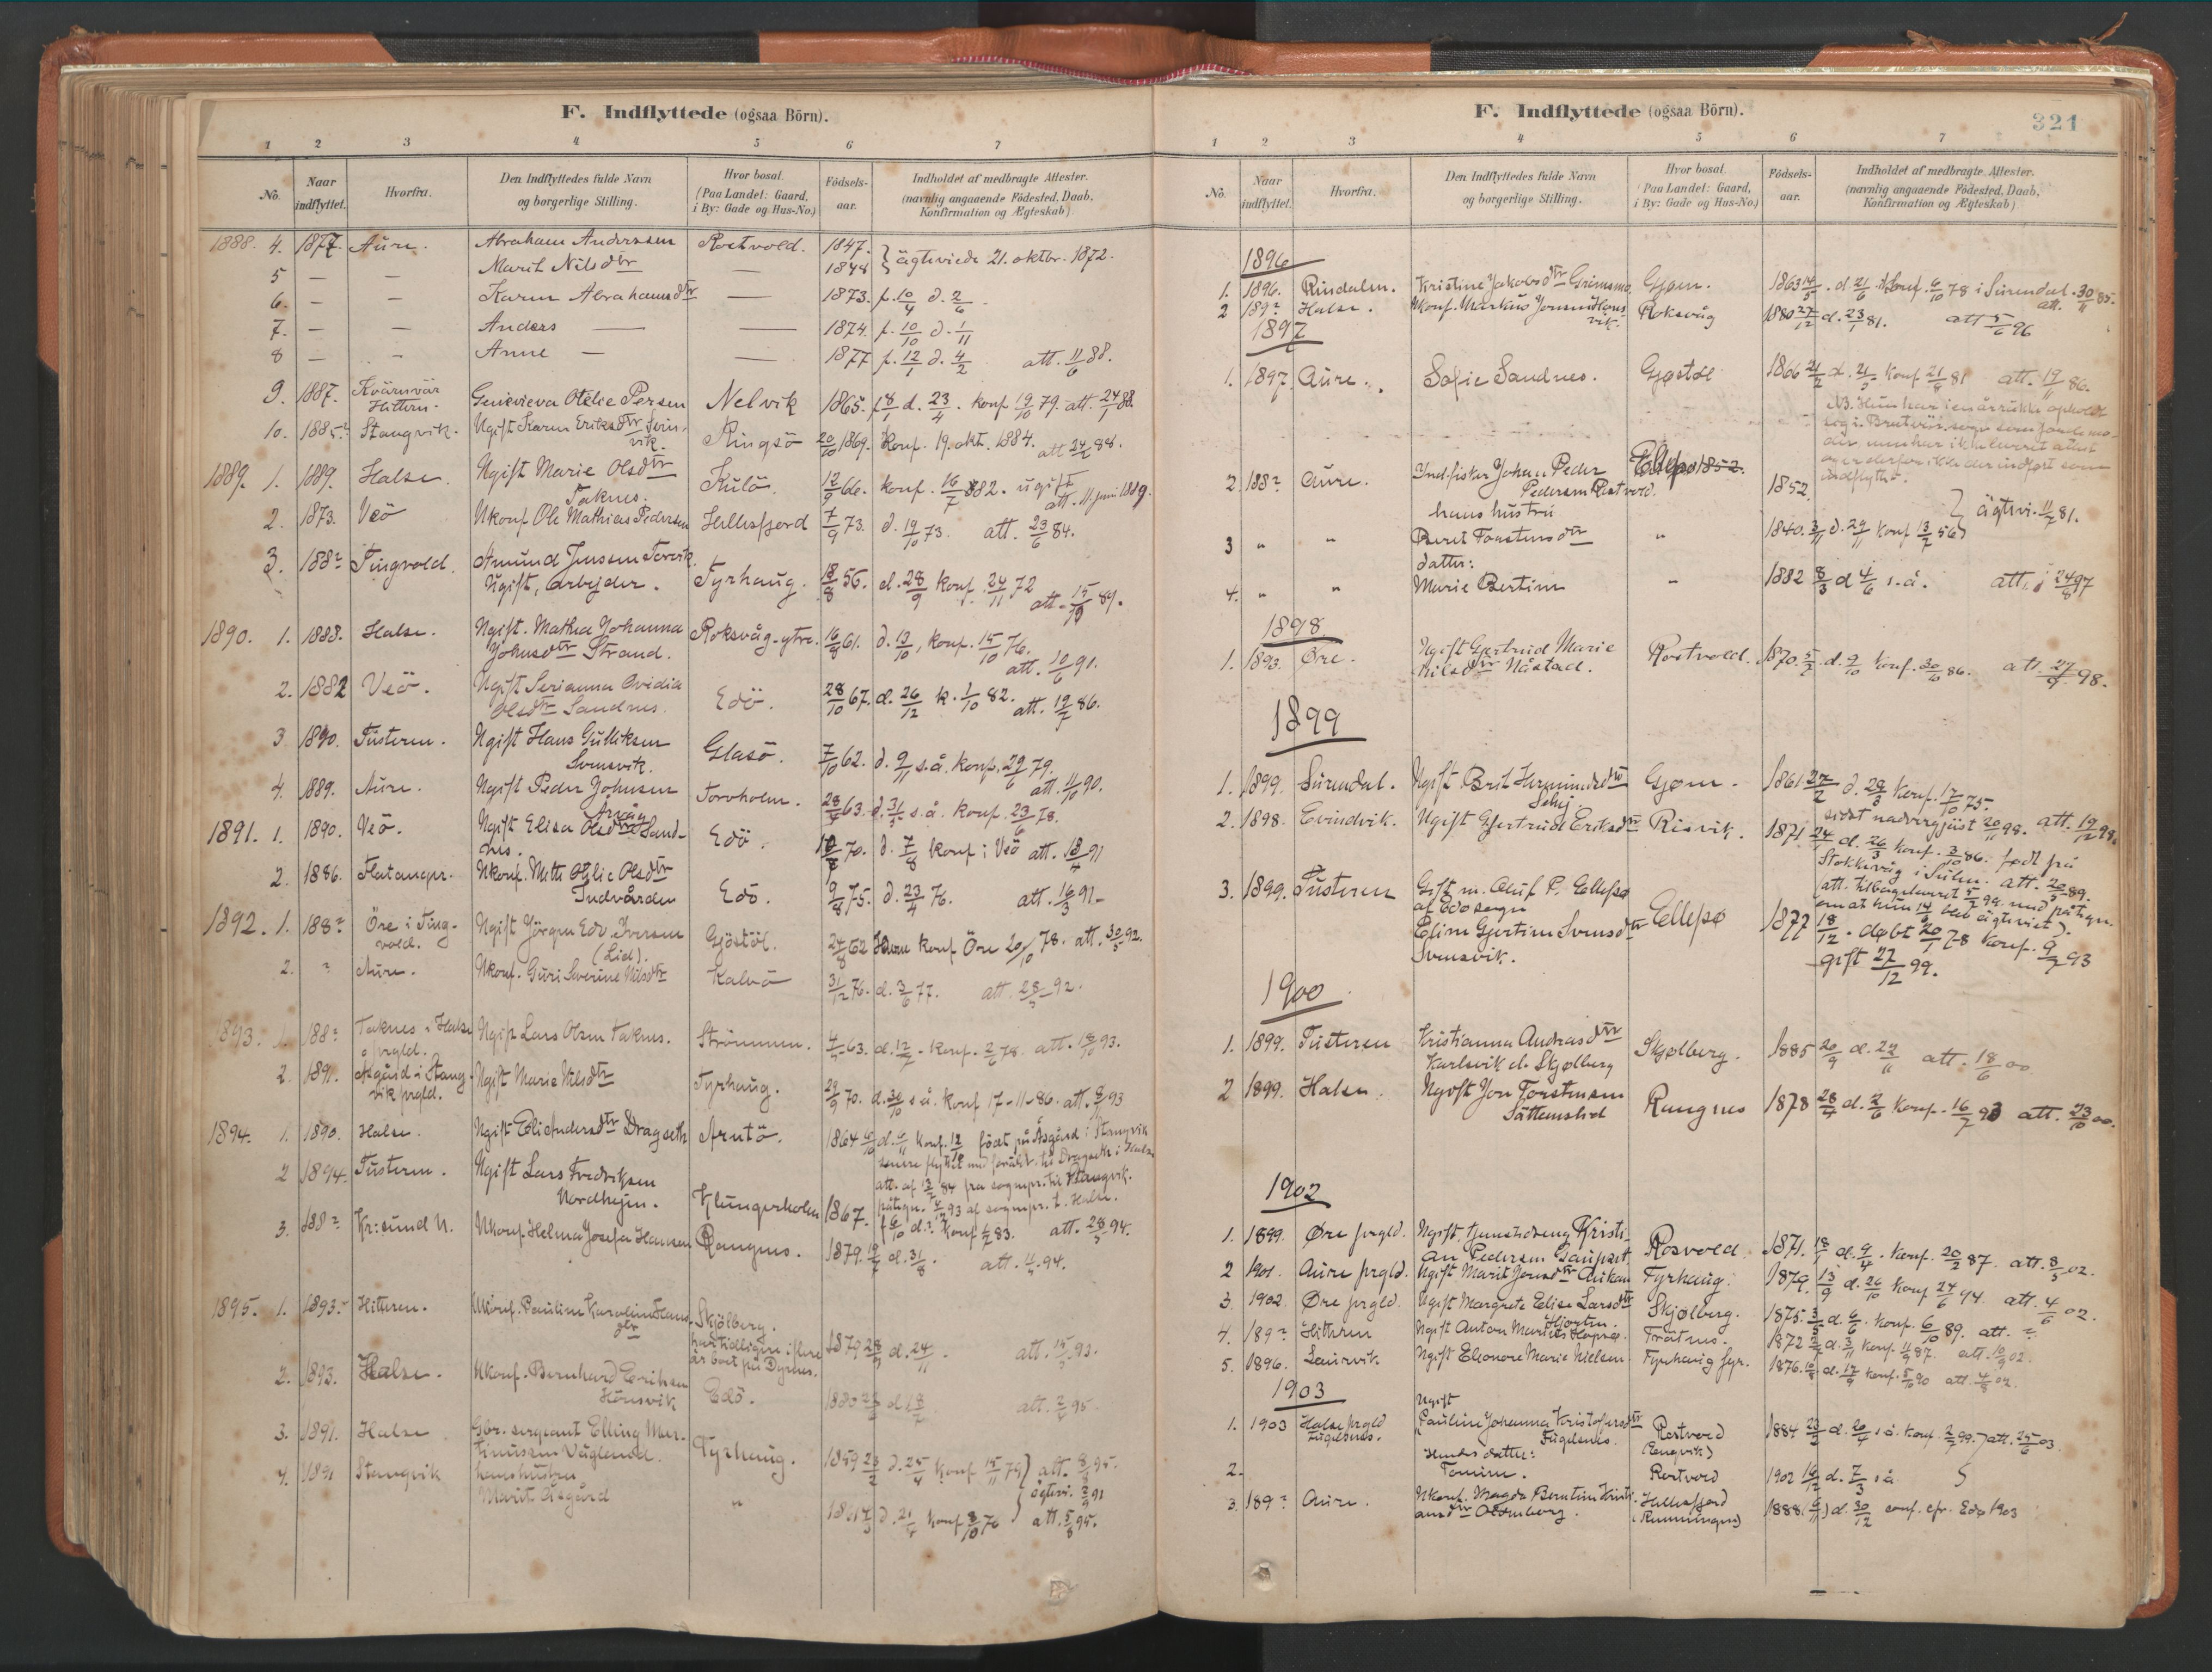 F. Indflyttede (ogsaa Börn).
1 2 3 4 5 6 7
No. Naar indflyttet. Hvorfra. Den Indflyttedes fulde Navn og borgerlige Stilling. Hvor bosat. (Paa Landet: Gaard, i By: Gade og Hus-No.) Födsels-aar. Indholdet af medbragte Attester. (navnlig angaaende Födested, Daab, Konfirmation og Ægteskab)
1888. 4. 1877. Aure. Abraham Anderssen Rostvold. 1847. } ägteviede 21. oktbr. 1872.
5 — — Marit Nilsdtr — 1848
6. — — Karen Abrahamsdtr — 1873. f. 10/4 d. 2/6.
7. — — Anders — — 1874. f. 10/10 d. 1/11
8 — — Anne — — 1877 f. 12/1 d. 4/2 att. 11/6 88.
9. 1887. Kvärnvär Hittern. Genevieva Otelie Persen Nelvik 1865. f 8/1 d. 23/4. konf 19/10 79. att. 24/1 88.
10. 1885? Stangvik. Ugift Karen Eriksdtr Svinvik. Ringsö 20/10 1869. Konf. 19. okt. 1884. att 24/2 88.
1889. 1. 1889. Halse. Ugift Marie Olsdtr Taknes. Kulö. 12/9 66. konf. 16/7 882. ugift att. 11 juni 1889.
2. 1873. Veö Ukonf Ole Mathias Pedersen Hellesfjord 7/9 73. d. 19/10 73. att. 23/6 84.
3. 188? Tingvold. Amund Jenssen Torvik. Ugift, arbejder. Tyrhaug. 18/8 56. d. 28/9 konf. 24/11 72 att. 15/10 89.
1890. 1. 1888. Halse. Ugift. Mathea Johanna Johnsdtr Strand. Roksvåg-ytre. 16/8 61. d. 13/10, konf. 15/10 76. att. 10/6 91.
2. 1882 Veö. Ugift Serianna Ovidia Olsdtr Sandnes. Edö. 28/10 67. d. 26/12 k. 1/10 82. att. 19/7 86.
3 1890. Tusteren. Ugift Hans Gulliksen Svensvik. Glasö. 7/10 62. d. 9/11 s.å. konf. 29/6 79. att. 11/10 90.
4. 1889. Aure. Ugift Peder Johnsen Årvåg Torvholm. 28/4 63. d. 31/5 s.å. konf. 23/6 78.
1891. 1. 1890. Veö. Ugift Elisa Olsdtr Sandnes. Edö. 70. d. 7/8 konf i Veö att. 18/4 91
2. 1886. Flatangr. Ukonf. Mette Otilie Olsdtr Indvården Edö. 9/8 75. d. 23/4 76. att. 16/3 91-
1892. 1. 188? Öre i Tingvold. Ugift Jörgen Edv. Iversen (Lid). Gjöstöl. 24/8 62 konf Öre 20/10 78. att. 30/5 92.
2. ? Aure. Ukonf. Guri Severine Nilsdtr Kalvö 31/12 76. d. 3/6 77. att. 28/5 92.
1893. 1. 188? Taknes i Halse prgld. Ugift Lars Olsen Taknes. Strömmen. 63. konf. 78. att. 18/10 93.
2. 1891. Asgård i Stangvik prgld. Ugift Marie Nilsdtr Tyrhaug. 29/9 70. d. 30/10 s.å. konf 17-11-86. att. 93
1894. 1. 1890. Halse. Ugift Eli Andersdtr Dragseth Arntö. 1864 födt på Åsgård i Stangvik
senere flyttet med foräldr. til Dragseth i Halse
att. af 84 fra sognepr. til Stangvik.
påtegn. 93 af sognepr. t. Halse.
2 1894. Tusteren. Ugift Lars Fredriksen Nordhejen. Klungerholm 1867. konf 83. att. 28/5 94.
3. 188? Kr:sund N. Ukonf. Helma Josefa Hansen Rangnes. 1879. d. 31/8. att. 94.
1895. 1. 1893. Hittern. Ukonf. Pauline Karoline Hansdtr Skjölberg. har tidligere i flere år boet på Dyrnes. 1879 d. 24/11. att. 93.
2. 1893. Halse. Ukonf. Bernhard Eriksen Hönsvik Edö. 1880 att. 95.
3. 1891. Halse Gbr. sergeant Elling Martinussen Vågland. Tyrhaug. 1859 d. 25/4 konf 15/11 74 } att. 95.
4. 1891 Stangvik hans hustru Marit Åsgård " 1861 konf 8/10 76 } ägtevi. 91 att. 5/8 95.
F. Indflyttede (ogsaa Börn). 321
1 2 3 4 5 6 7
No. Naar indflyttet. Hvorfra. Den Indflyttedes fulde Navn og borgerlige Stilling. Hvor bosat. (Paa Landet: Gaard, i By: Gade og Hus-No.) Födsels-aar. Indholdet af medbragte Attester. (navnlig angaaende Födested, Daab, Konfirmation og Ægteskab)
1896
1. 1896. Rindalen. Kristine Jakobsdtr Grimsmo. Gjøen. 1863 14/5. d. 21/6. Konf. 6/10 78 i Surendal. att. 30/11 85.
2 189? Halse. Ukonf. Markus Jonsen Hønsvik. Roksvåg 1880 27/12 d. 23/1 81. att 5/6 96
1897
1. 1897. Aure. Sofie Sandnes. Gjøstøl 1866 konf 81 att. 19/7 86.
NB. Hun har i en årrække opholdt
sig i Bratvär sogn som jordemoder
men har ikke leveret attest
og er derfor ikke der indført som
indflyttet.
2. 188? Aure. Indfisker Johan Peder Pedersen Rostvold. Ellefsø 1852. 1852. } ägtevi. 11/7 81.
hans hustru
3 " " Beret Torstensdtr " 1840. 3/11 d. 29/11 konf 13/7 56
datter:
4. " " Marie Bertine " 1882 8/3 d 4/6 s.å. att. 24/8 97
1898
1. 1893. Øre. Ugift Gjertrud Marie Nilsdtr Nåstad. Rostvold. 1870. 5/2. d. 9/10 konf. 30/10 86. att. 27/9 98.
1899
1. 1899. Surendal. Ugift Brit Gjøen. 1861 27/2 d. 29/3 konf. 17/10 75.
sidst nadvergjäst 20/11 98. att. 19/12 98.
2. 1898. Evindvik. Ugift Gjertrud Eriksdtr Risvik. 1871. 24/2 d. 26/3 konf. 3/10 86. født på
Stokkevåg i Sulen. att. 20/5 89.
(att. tilbageleveret 5/5 99 med påtegn.
om at hun 14/5 blev ägteviet).
3. 1899. Tusteren Gift m. Oluf P. Ellefsø af Edö sogn Eline Gjertine Svensdtr Svensvik. Ellefsø 1877 18/12. døbt 20/1 78 konf. 9/7 93
gift 27/12 99.
1900
1. 1899. Tusteren Kristianna Andreasdtr Karlsvik d. Skjølberg Skjølberg. 1885 20/9 d. 22/11 att. 18/6 00
2 1899. Halse. Ugift Jon Torstensen Sättemslid Rangnes 1878 28/4 d. 2/6 konf. 16/7 93 att. 23/10 00.
1902
1. 1899. Øre prgld. Ugift. tjenestedreng Kristian Pedersen Gaupset Rosvold. 1871. 18/1 d. 9/4. konf. 20/2 87. att. 8/5 02.
2 1901. Aure prgld. Ugift Marit Jonsdtr Aukan Tyrhaug. 1879. 13/9 d. 26/10 konf 24/6 94. att. 4/6 02.
3. 1902. Øre prgld. Ugift Margrete Elise Larsdtr Hjorten. Skjølberg. 1875. konf. 6/10 89. att. ?
4. 189? Hittern Ugift Anton Marius Hopsø. Trätnes. 1872 konf. 87. att. 10/9 02.
5. 1896. Leirvik Ugift Eleonore Marie Nielsen Tyrhaug fyr. 1876. d. 17/9 konf. 5/10 90 att. 4/8 02.
1903
1. 1903 Halse prgld Fugelsnes. Ugift Pauline Johanna Kristofersdtr Fugelsnes. Rostvold (Engvik) 1884 d. 20/4 s.å. konf. 99. } att. 25/6 03.
Hendes datter:
2. Tomine. Rostvold 1902 d. 7/3 s.å.
3. 189? Aure. Ukonf. Magda Berntine Kristiansdtr Hellesfjord 1888. d. 30/12 conf. cfr. Edø 1903